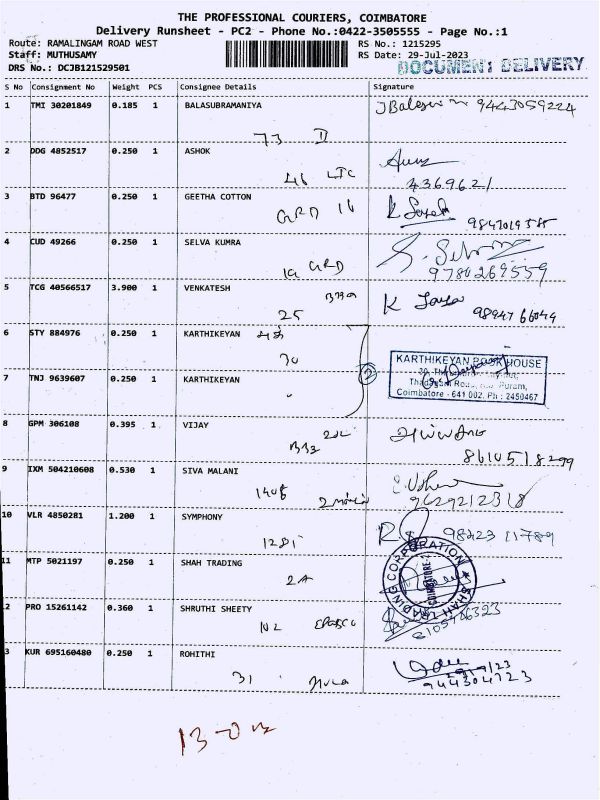 THE PROFESSIONAL COURIERS, COIMBATORE
Delivery Runsheet - PC2 - Phone No.:0422-3505555 - Page No.:1
Route: RAMALINGAM ROAD WEST RS No.: 1215295
Staff: MUTHUSAMY RS Date: 29-Jul-2023
DRS No.: DCJB121529501 DOCUMENT DELIVERY
S No Consignment No Weight PCS Consignee Details Signature
1 TMI 30201849 0.185 1 BALASUBRAMANIYA 9443059224
73 D
2 DDG 4852517 0.250 1 ASHOK
46 LIC 4369621
3 BTD 96477 0.250 1 GEETHA COTTON
GRD 16
4 CUD 49266 0.250 1 SELVA KUMRA
GRD 9780269559
5 TCG 40566517 3.900 1 VENKATESH K
25 9894766049
6 STY 884976 0.250 1 KARTHIKEYAN
30 KARTHIKEYAN BOOK HOUSE
7 TNJ 9639607 0.250 1 KARTHIKEYAN 2 Puram,
Coimbatore - 641 002. Ph : 2450467
8 GPM 306108 0.395 1 VIJAY
8610518299
9 IXM 504210608 0.530 1 SIVA MALANI
1406 9629212318
10 VLR 4850281 1.200 1 SYMPHONY 98423 11789
1281
11 MTP 5021197 0.250 1 SHAH TRADING SHAH TRADING CORPORATION
2A COIMBATORE
2 PRO 15261142 0.360 1 SHRUTHI SHEETY
102 8105406323
3 KUR 695160480 0.250 1 ROHITHI
31 944304723
13